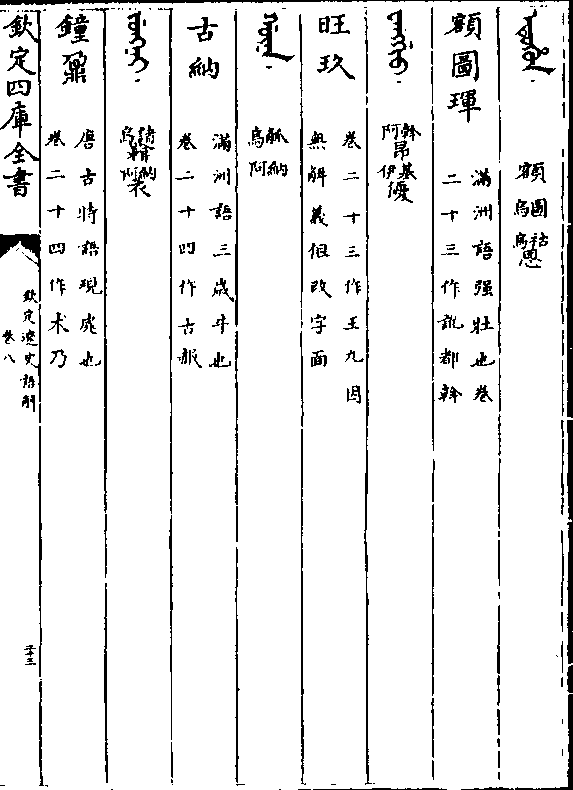 ᡝᡨᡠᡥᡠᠨ 額圖烏祜烏恩
額圖琿 滿洲語強壯也卷
二十三作訛都斡
斡阿昂基伊優
旺玖 卷二十三作王九因
無解義但改字面
ᡤᡠᠨᠠ 觚烏納阿
古納 滿洲語三歲牛也
卷二十四作古赧
諸烏納阿
鐘鼐 唐古特語現成也
卷二十四作术乃
欽定四庫全書
欽定遼史語解
卷八
二十三